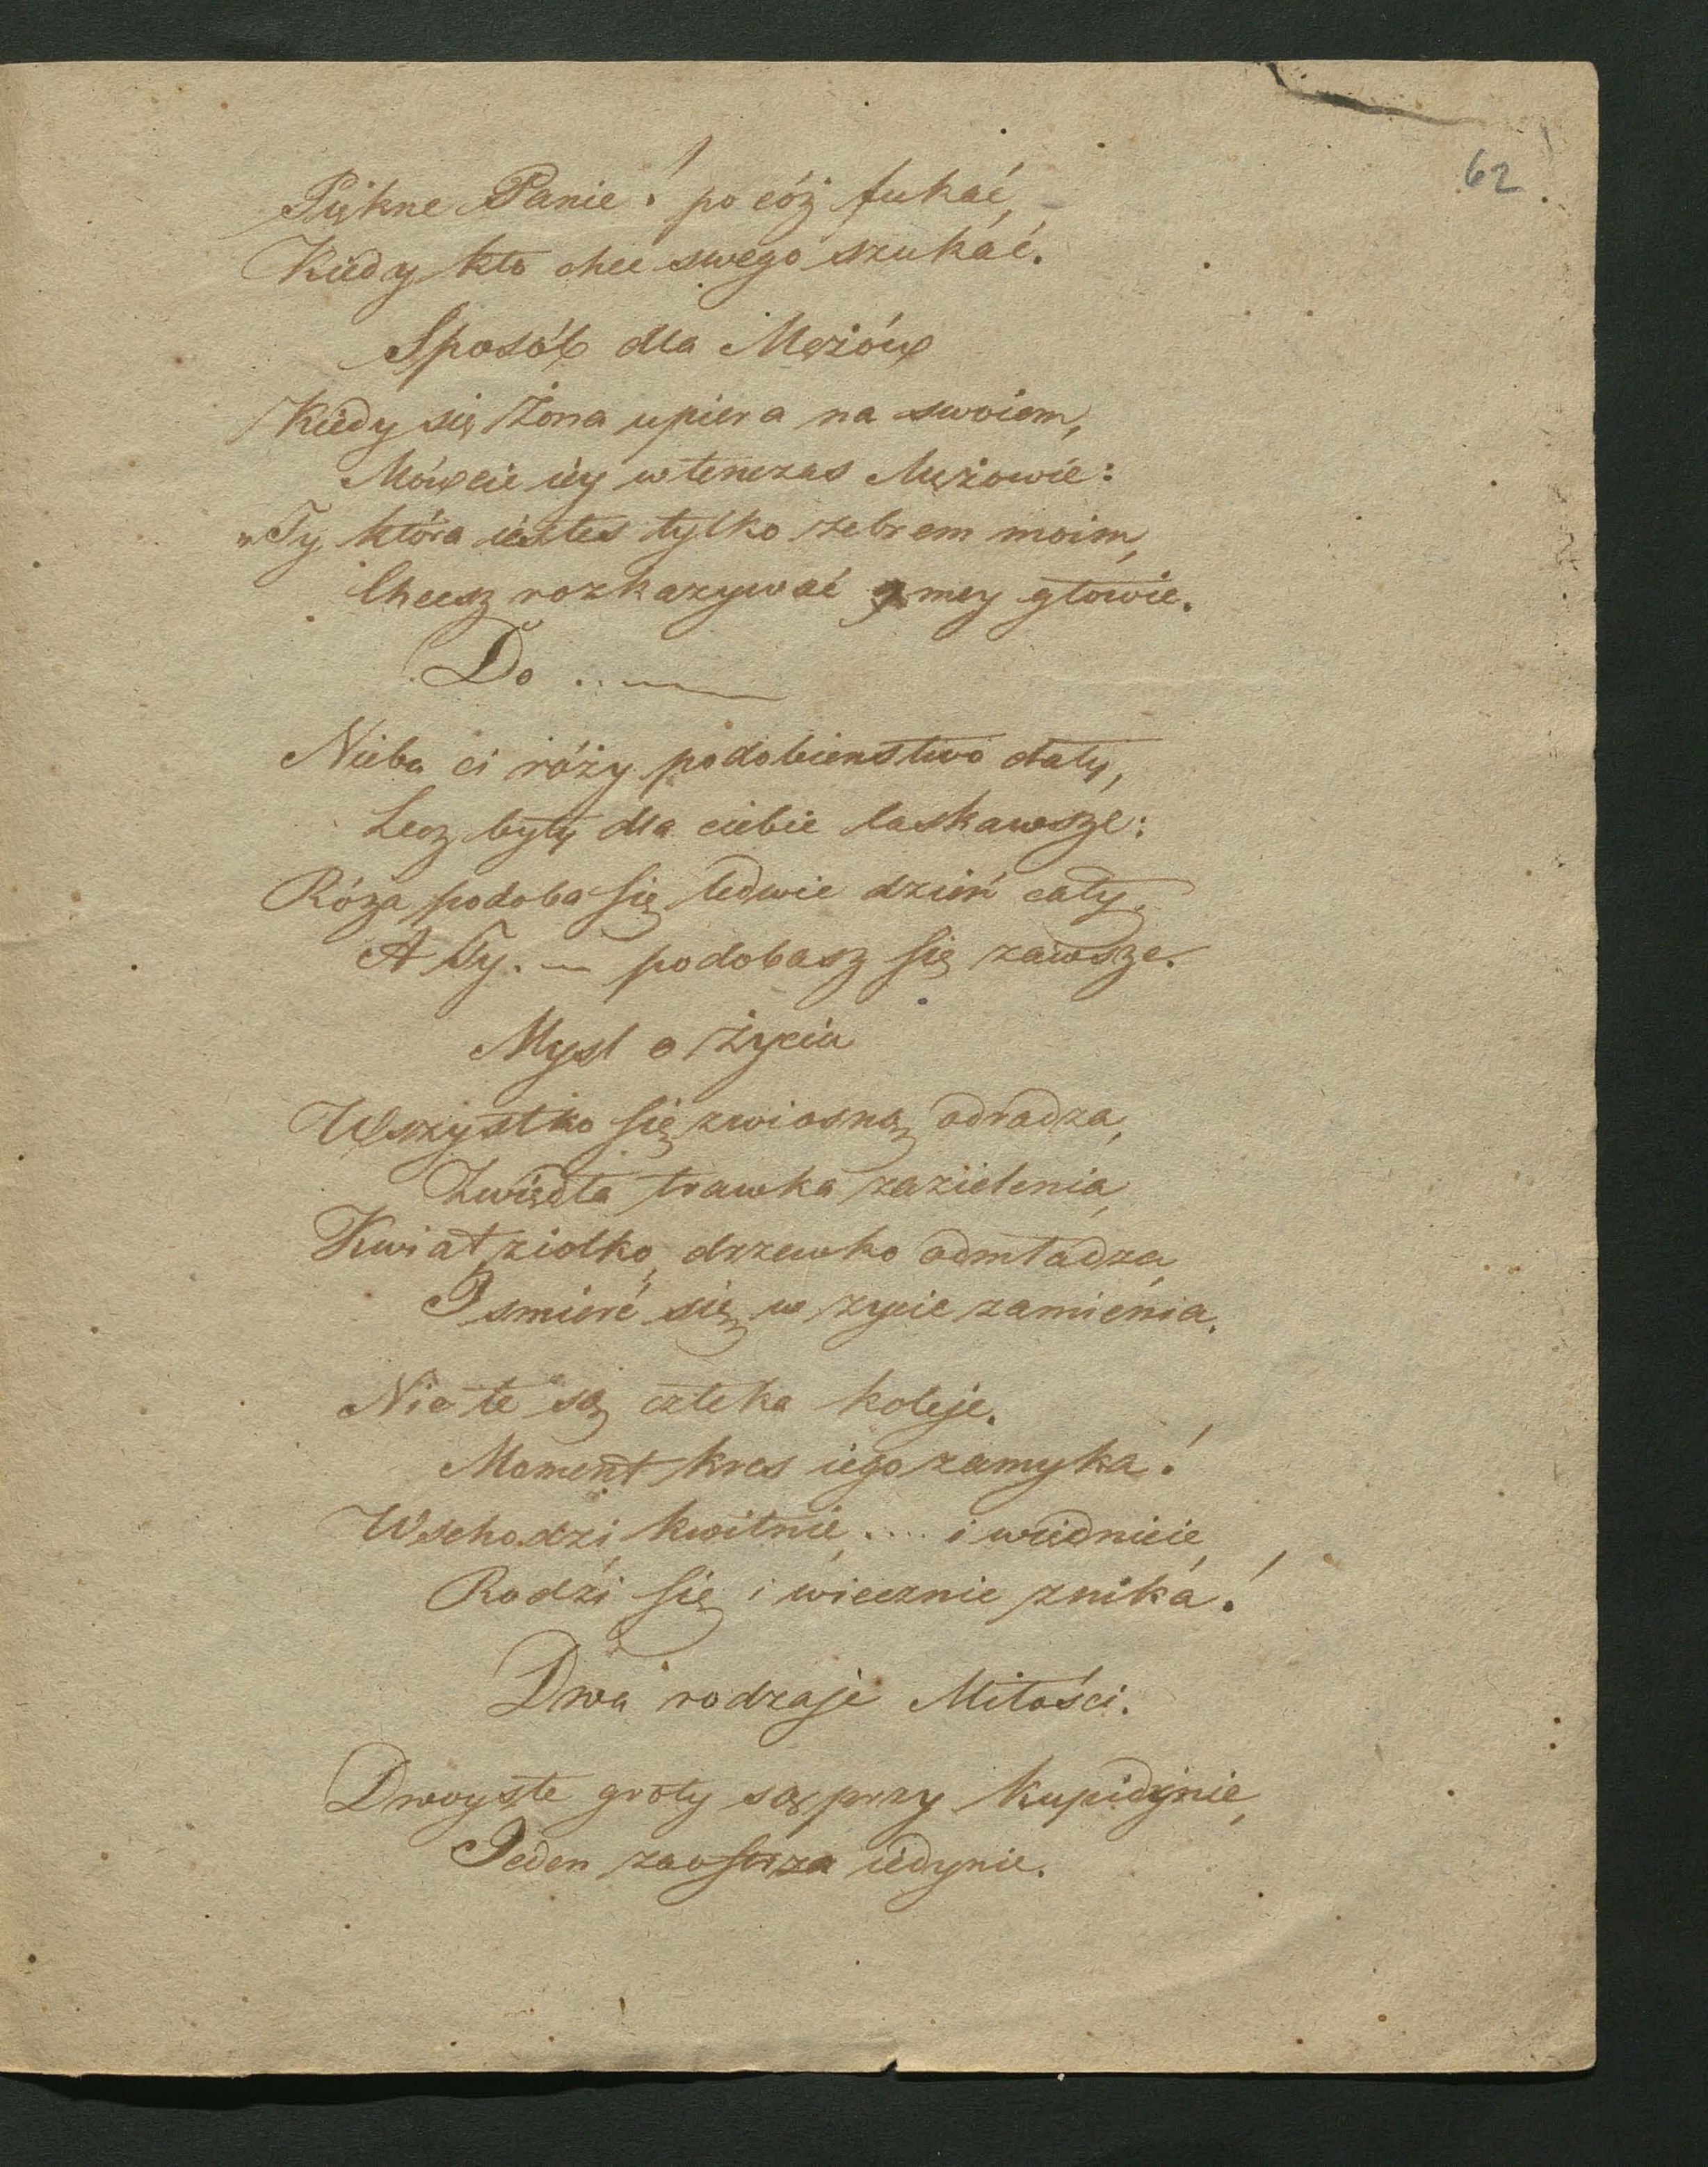 62
Piękne Panie! po cóż fukać,
Kiedy kto chce swego szukać.
Sposób dla Mężów
Kiedy się Żona upiera na swoiem,
Mówcie iéy wtenczas Mężowie:
„Ty która iesteś tylko żebrem moim,
Chcesz rozkazywać mey głowie.
Do .. ——
Nieba ci róży podobieństwo dały,
Lecz były dla ciebie łaskawsze:
Róża podoba się ledwie dzień cały,
A Ty. — podobasz się zawsze.
Mysl o Życiu
Wszystko się zwiosną odradza,
Zwiędła trawka zazielenia,
Kwiat, ziołko, drzewko odmładza,
I smierć się w życie zamienia.
Nie te są człeka koleje.
Moment kres iego zamyka!
Wschodzi kwitnie, .... i więdnieie,
Rodzi się i wiecznie znika!
Dwa rodzaje Miłości.
Dwoyste groty są przy Kupidynie,
Jeden zaostrza iedynie.